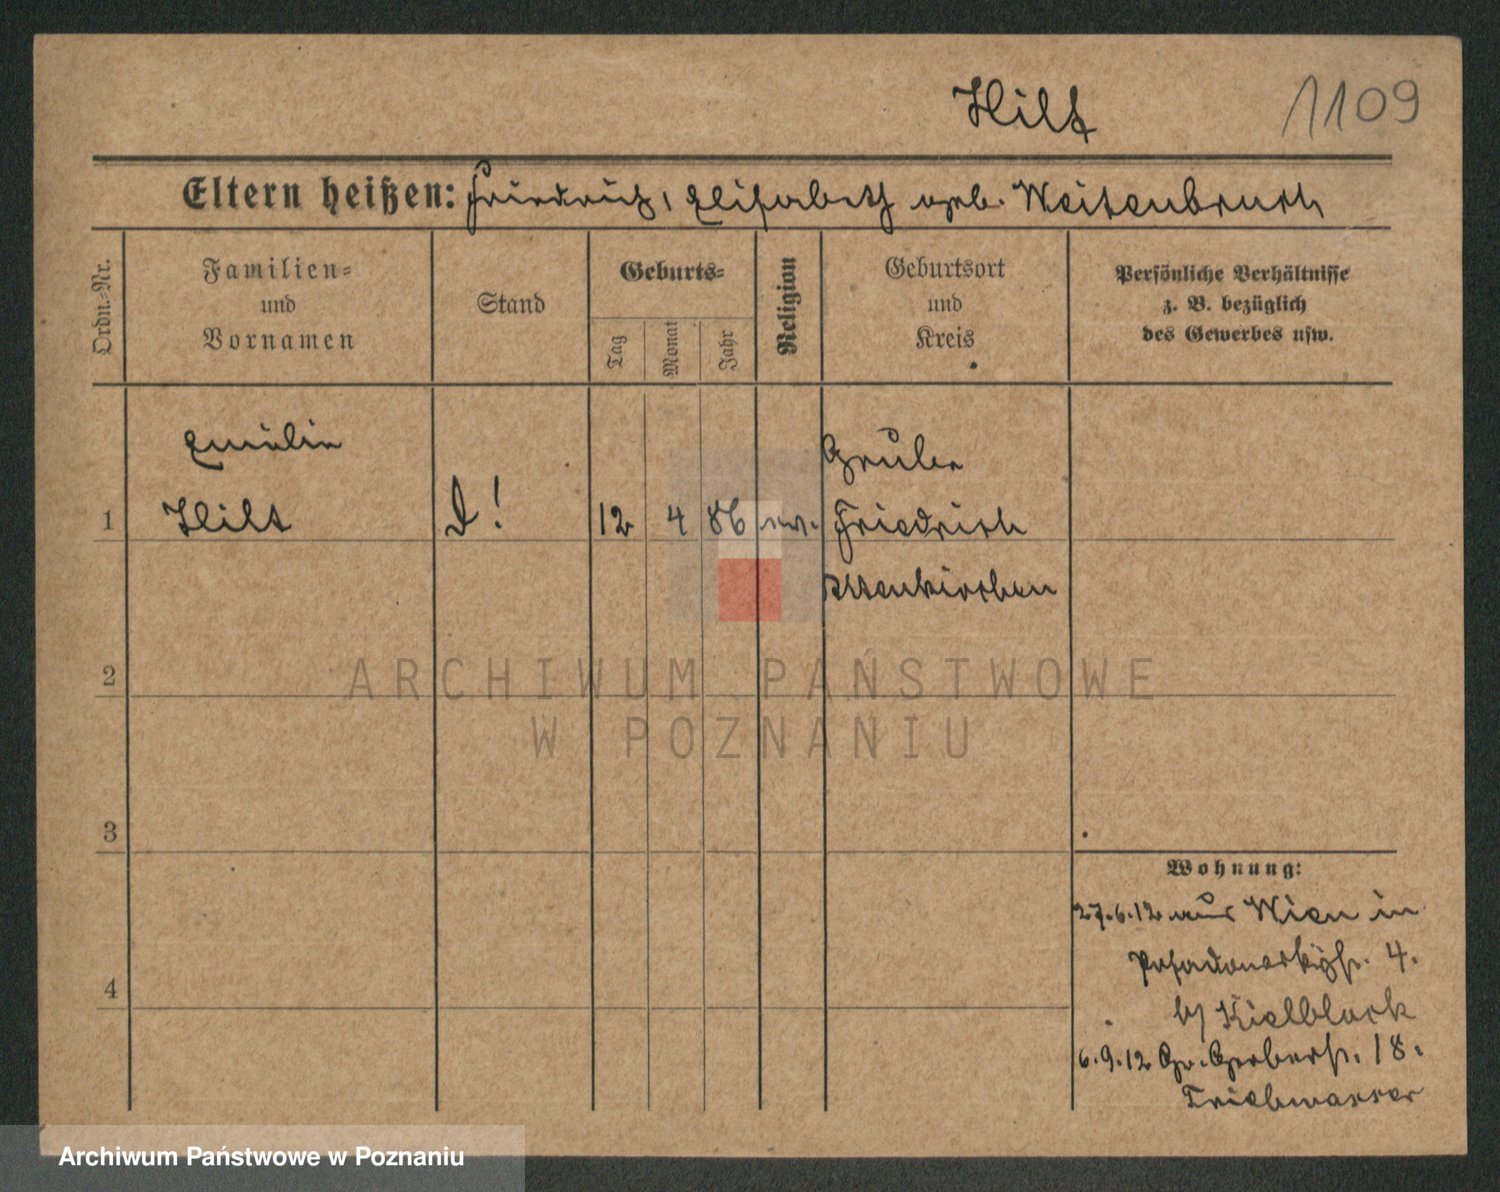 Hilt 1109
Eltern heißen: Friedrich, Elisabeth geb. Weitenbruch
Ordn.-Nr.
Familien-
und
Vornamen
Stand
Geburts-
Tag
Monat
Jahr
Religion
Geburtsort
und
Kreis
Persönliche Verhältnisse
z. B. bezüglich
des Gewerbes usw.
Emilie
Grube
1 Hilt D! 12 4 86 ev. Friedrich
Altenkirchen
ARCHIWUM PAŃSTWOWE
2
W POZNANIU
3
Wohnung:
27.6.12 aus Wien in
4.
4
b/ Kielblock
6.9.12 Gr. Gerberst. 18.
Triebwasser
Archiwum Państwowe w Poznaniu